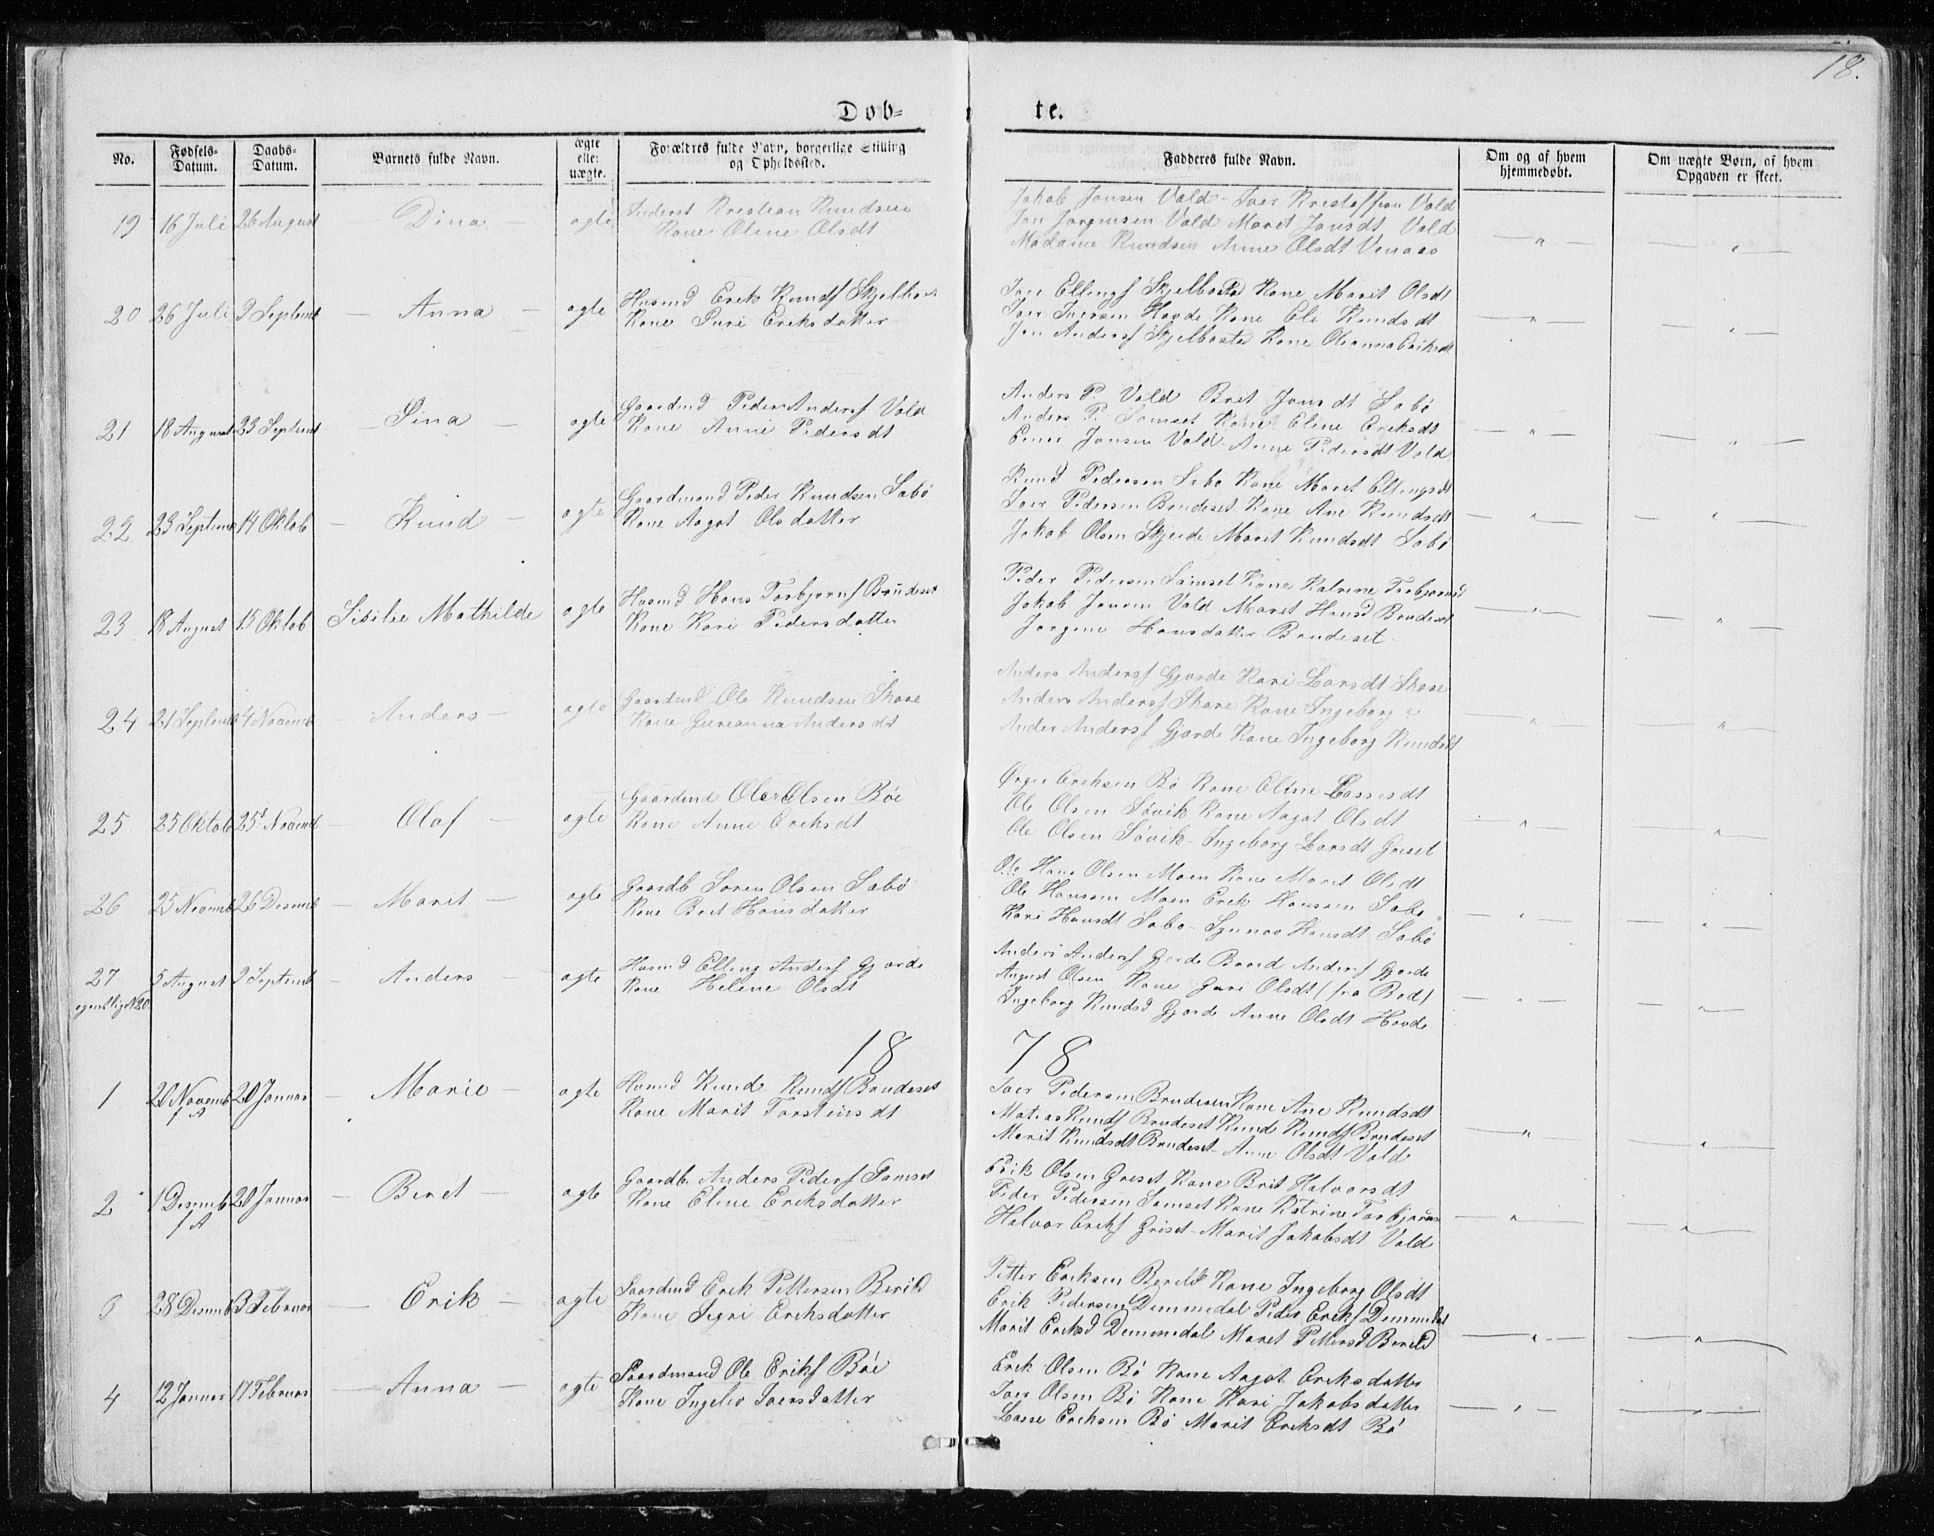 18.
Døb-te.
No. Fødsels-Datum. Daabs-Datum. Barnets fulde Navn. ægte eller uægte. Forældres fulde Navn, borgerlige Stilling og Opholdssted. Fadderes fulde Navn. Om og af hvem hjemmedøbt. Om uægte Børn, af hvem Opgaven er skeet.
19 16 Juli 26 August Dina ægte Krestian Knudsen
Kone Oline Olsdt
Jakob Jonsen Vold - Iver Krestoffsen Vold
Jon Jørgensen Vold Marit Jonsdt Vold
Madame Knudsen Anne Olsdt Venaas
20 26 Juli 2 Septemb - Anna - ægte Husmd Erik Knudsf Skjelbost
Kone Guri Eriksdatter
Iver Ellingsf Skjelboste Kone Marit Olsdt
Iver Iversen Hovde Kone Eli Knudsdt
Jon Andersf Skjelboste Kone Oleanna Eriksdt
21 18 August 23 Septemb - Sina - ægte Gaardmd Peder Andersf Vold
Kone Anne Pedersdt
Anders P. Vold Brit Jonsdt Sæbø
Anders P. Samset Kone Eline Eriksdt
Jonsen Vold - Anne Pedersdt Vold
22 23 Septemb 14 Oktob - Knud - ægte Gaardmand Peder Knudsen Sæbø
Kone Aagot Olsdatter
Knud Pedersen Sæbø Kone Maret Ellingsdt
Iver Pedersen Brudeset Kone Ane Knudsdt
Jakob Olsen Skjeide Marit Knudsdt Sæbø
23 18 August 15 Oktob Sisilie Mathilde ægte Husmd Hans Torbjørnsf Brudeset
Kone Kari Pedersdatter
Peder Pedersen Samset Kone Katrine Torbjørnsd
Jakob Jonsen Vold Maret Hansd Brudeset
Jørgine Hansdatter Brudeset
24 21 Septemb 4 Novemb - Anders - ægte Gaardmd Ole Knudsen Skare
Kone Gureanna Andersdt
Anders Andersf Gjørde Kari Larsdt Skare
Anders Andersf Skare Kone Ingeborg
Anders Andersf Gjørde Kone Ingeborg Knudsdt
25 25 Oktob 25 Novemb - Olaf - ægte Gaardmd Ole Olsen Bøe
Kone Anne Eriksdt
Eriksen Bø Kone Oline Lassesdt
Ole Olsen Søvik Kone Aagot Olsdt
Ole Olsen Søvik - Ingeborg Larsdt Griset
26 25 Novemb 26 Desemb - Marit - ægte Gaardb Søren Olsen Sæbø
Kone Brit Hansdatter
Ole Hans Olsen Moen Kone Marit Olsdt
Ole Hansen Moen Erik Hansen Sæbø
Kari Hansdt Sæbø - Synnøv Hansdt Sæbø
27 5 August 2 Septemb - Anders - ægte Husmd Elling Andersf Gjørde
egentligt N20. Kone Helene Olsdt
Anders Andersf Gjørde Baard Andersf Gjørde
August Olsen Kone Guri Olsdt (fra Bod)
Ingeborg Knudsd Gjørde Anne Olsdt Hovde
18 78
1 20 Novemb f A 20 Januar - Marie - ægte Husmd Knud Knudsf Brudeset
Kone Marit Torstensdt
Iver Pedersen Brudeset Kone Ane Knudsdt
Matias Knudsf Brudeset Knud Knudsf Brudeset
Marit Knudsdt Brudeset - Anne Olsdt Vold
2 1 Desemb f A 20 Januar - Beret - ægte Gaardb Anders Pedersf Samset
Kone Eline Eriksdatter
Erik Olsen Griset Kone Brit Halvorsdt
Peder Pedersen Samset Kone Katrine Torbjørns
Halvor Eriksf Griset - Marit Jakobsdt Vold
3 28 Desemb 3 Februar - Erik - ægte Gaardmd Erik Pettersen Berild
Kone Sigri Eriksdatter
Petter Eriksen Berild Kone Ingeborg Olsdt
Erik Pedersen Demmedal Peder Eriksf Demmedal
Marit Eriksd Demmedal Maret Pettersd Berild
4 12 Januar 17 Februar - Anna - ægte Gaardmand Ole Eriksf Bøe
Kone Ingelev Iversdatter
Erik Olsen Bø Kone Aagot Eriksdatter
Iver Olsen Bø Kone Kari Jakobsdatter
Lasse Eriksen Bø Marit Eriksdt Bø